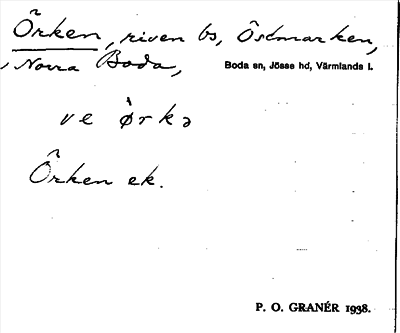 Örken, riven bs, Östmarken,
Norra Boda, Boda sn, Jösse hd, Värmlands l.
ve ǿrkə
Örken ek.
P. O. GRANÉR 1938.